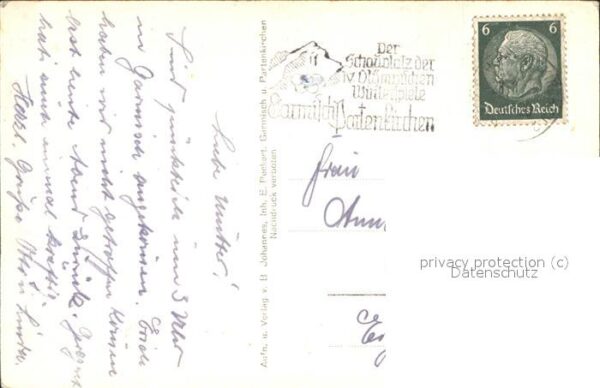 Liebe Mutter!
Sind pünktlich um 5 Uhr
in Garmisch angekommen.
haben wir nicht getroffen können
erst heute Abend zurück.
hat einmal kräftig
Herzl. Grüße
Aufn. u. Verlag v. B. Johannes, Inh. E. Punkert, Garmisch u. Partenkirchen
Nachdruck verboten
Der
Schauplatz der
IV. Olympischen
Winterspiele
Garmisch Partenkirchen
6 6
Deutsches Reich
Frau
privacy protection (c)
Datenschutz